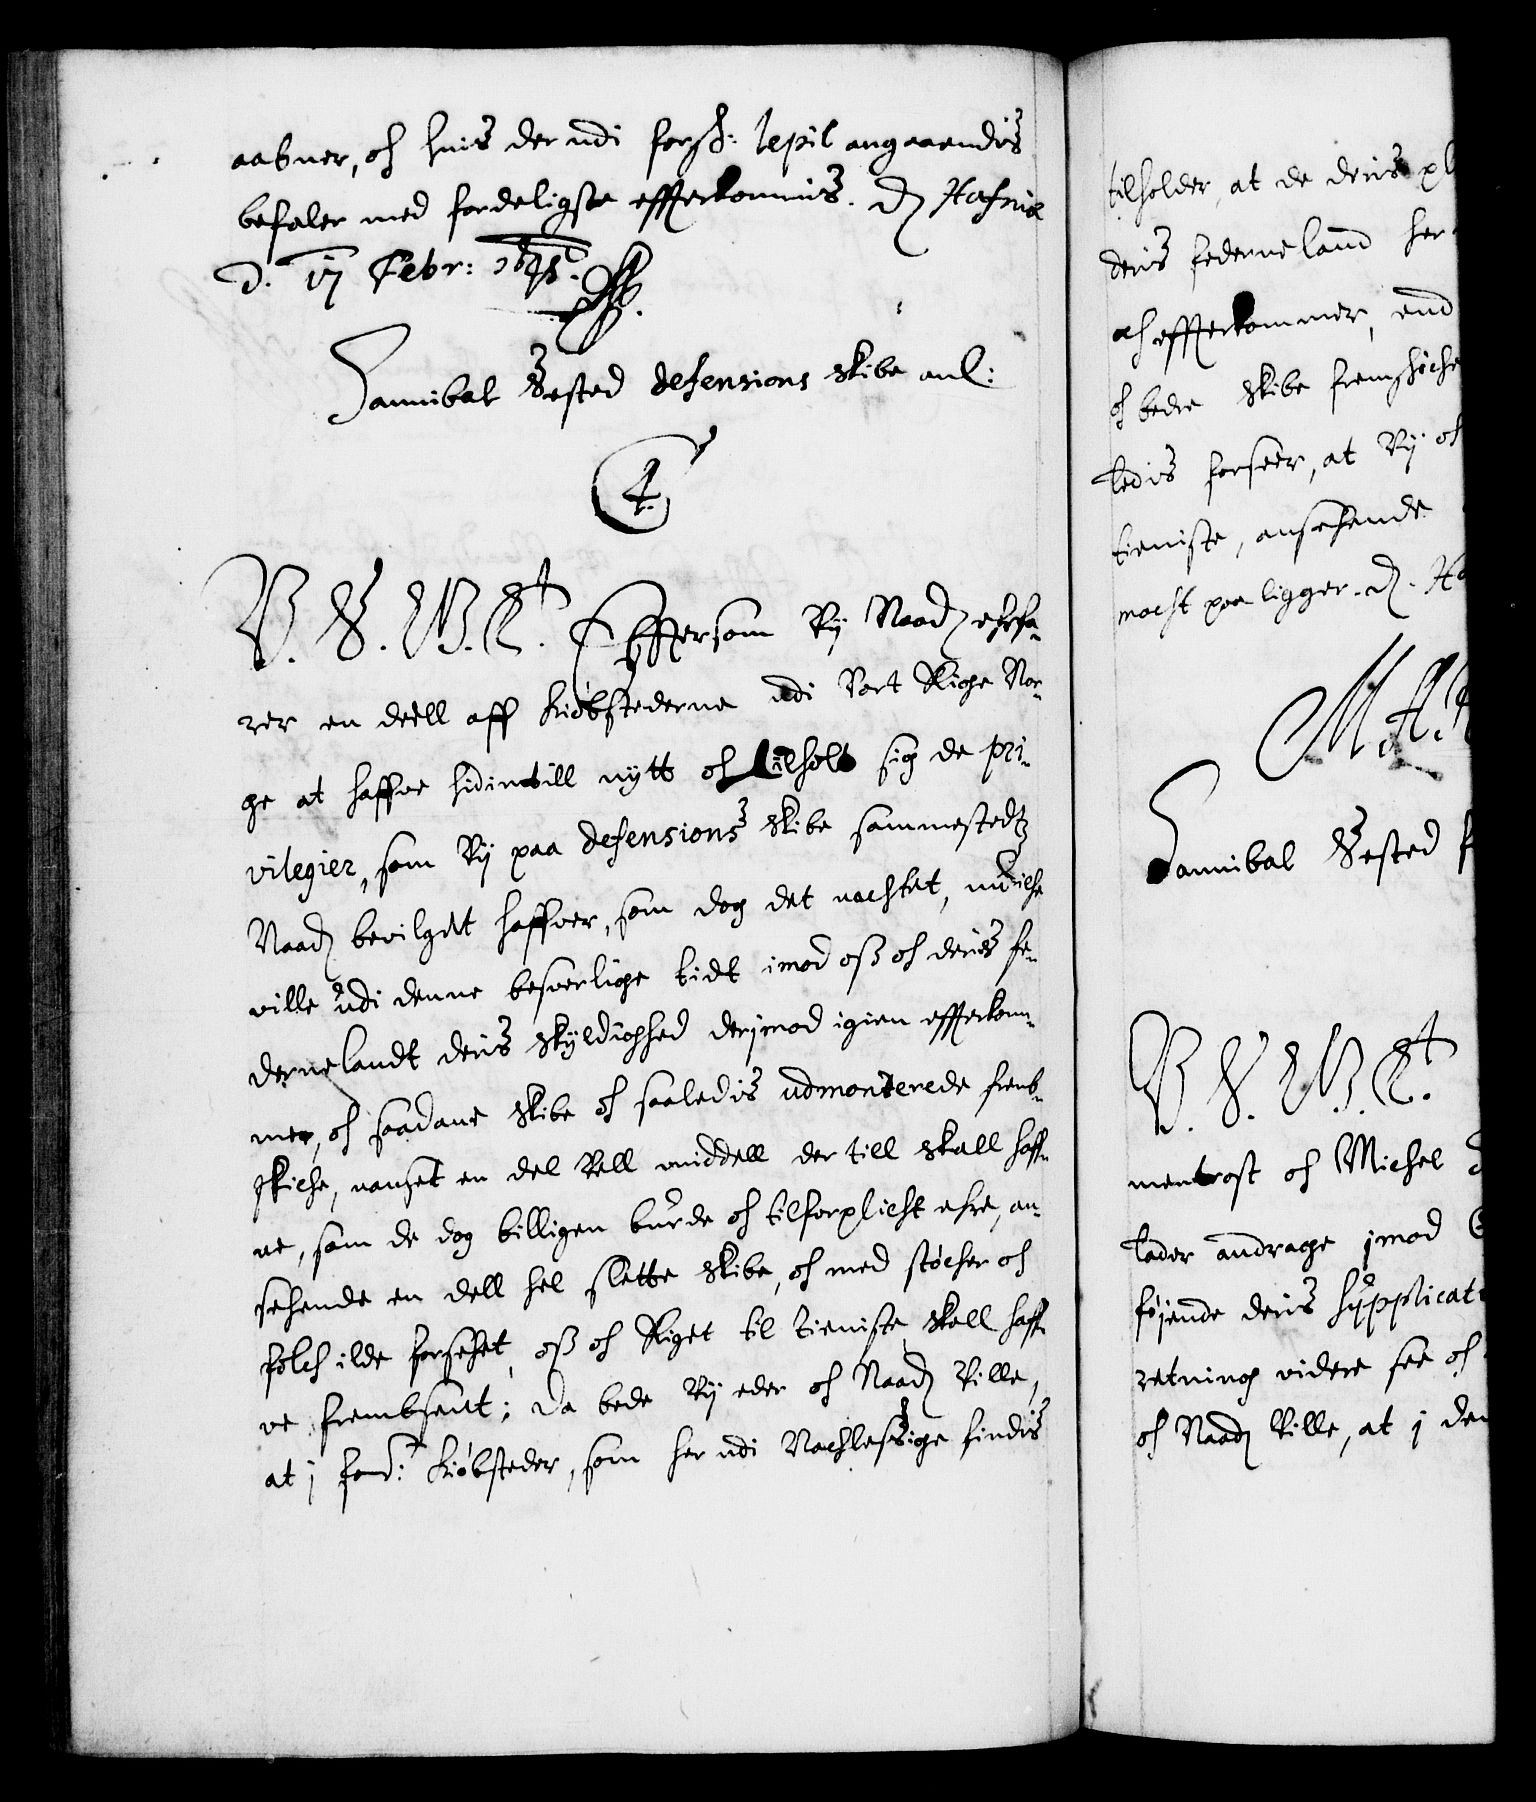 aabner, och huis der udi forsk: lepil angaaendis
befaler med fordeligste effterkommis. D Hafniæ
d. 17 Febr: 1645.
Hannibal Sested defensions skibe anl:
4.
V. S. G. B. C. Effersom Vy Naad erfa-
rer en deell aff Kiøbstederne udi Vort Rige Nor-
ge at haffve hidintill nytt och tilholt sig de pri-
vilegier, som Vy paa defensions skibe sammestedtz
Naad bevilget haffver, som dog det uachtet, nu iche
ville udi denne besverlige tidt imod oss och deris fe-
dernelandt deris skyldighed derimod igien effterkom-
mer, och saadane skibe och saaledis udmonterede fremb-
skiche, uanset en del Vell middell der till skall haff-
ve, som de dog billigen burde och tilforplicht ehre, an-
sehende en dell hel slette skibe, och med støcher och
folch ilde forsehet, oss och Riget til tieniste skall haff-
ve frembsent; Da bede Vy eder och Naad Ville,
at j forn: Kiøbsteder, som her udi Nachlessige findis
tilholder, at de deris pl
deris federneland her
och effterkommer, end
och bedre skibe fremschiche
ledis forseer, at Vy och
tieniste, ansehende
macht paa ligger. D. Ha
Hannibal Sested f
mentrost och Michel
lader andrage imod
føjende deris Supplicat
retning videre see och
och Naad Ville, at j den